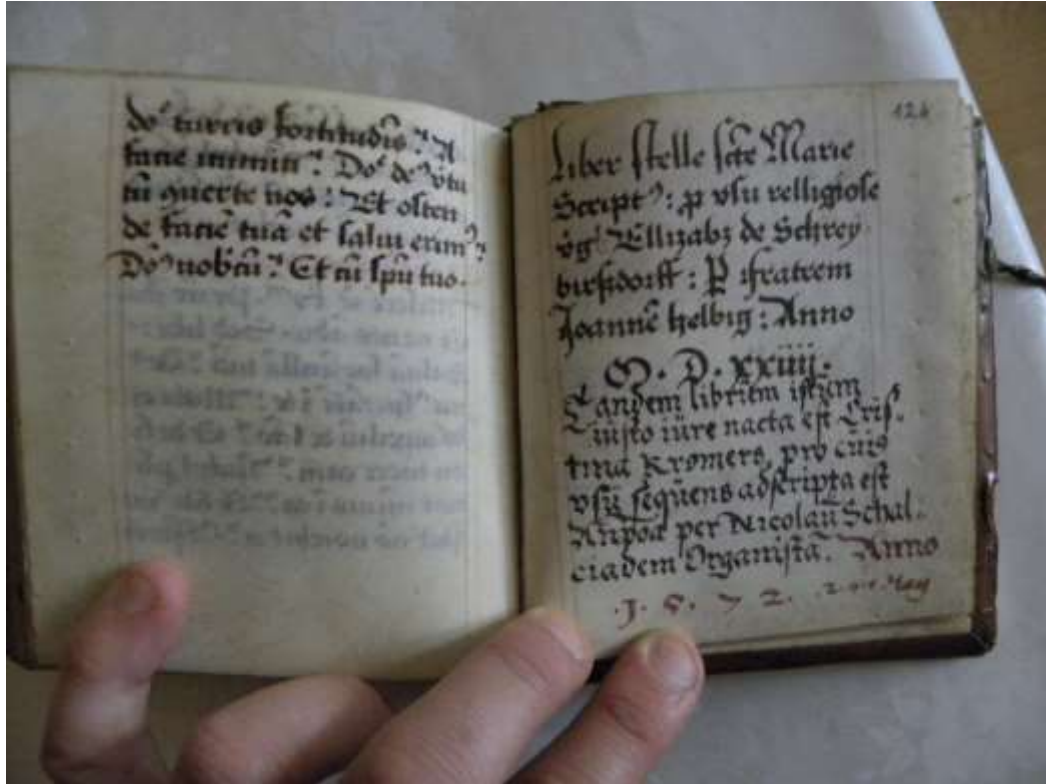 do᷒ turris fortitudīs : A
facie inimici : Do᷒ de᷒ v̄tu
tū ꝯuerte nos : Et osten
de faciē tuā et salui erim᷒ :
Do᷒ uobcū : Et cū spū tuo.
124
Liber stelle scte Marie
Script᷒ : ꝓ vsu relligiose
v̄g Ellizabꝫ de Schrey
birſzdorff : ꝑ ffratrem
Joannē helbig : Anno
M. D. xxiiij.
Eandem librum istum
iusto iure nacta est Cris
tina Kromers, pro cui᷒
vsu sequens adscripta est
Anpoa per Nicolaū Schal.
ciadem Organistā. Anno
.1.5.72. May